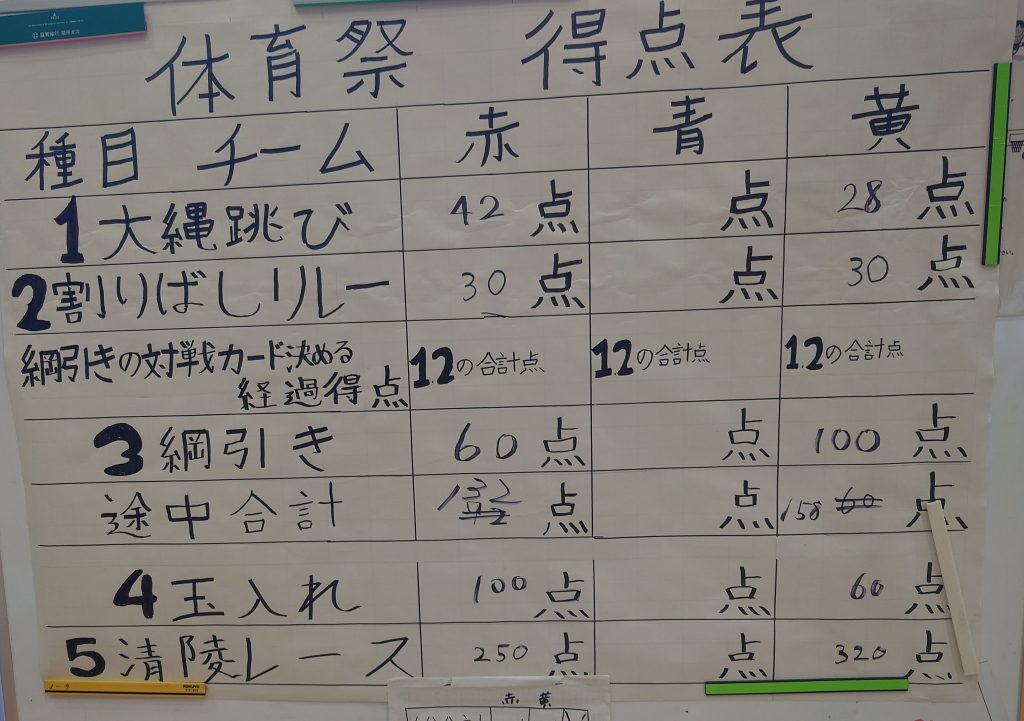 体育祭 得点表
種目 チーム 赤 青 黄
1 大縄跳び 42 点 点 28 点
2 割りばしリレー 30 点 点 30 点
綱引きの対戦カード決める
経過得点 1.2の合計点 12の合計点 1.2の合計点
3 綱引き 60 点 点 100 点
途中合計 132 点 点 158 60 点
4 玉入れ 100 点 点 60 点
5 清陵レース 250 点 点 320 点
赤 黄